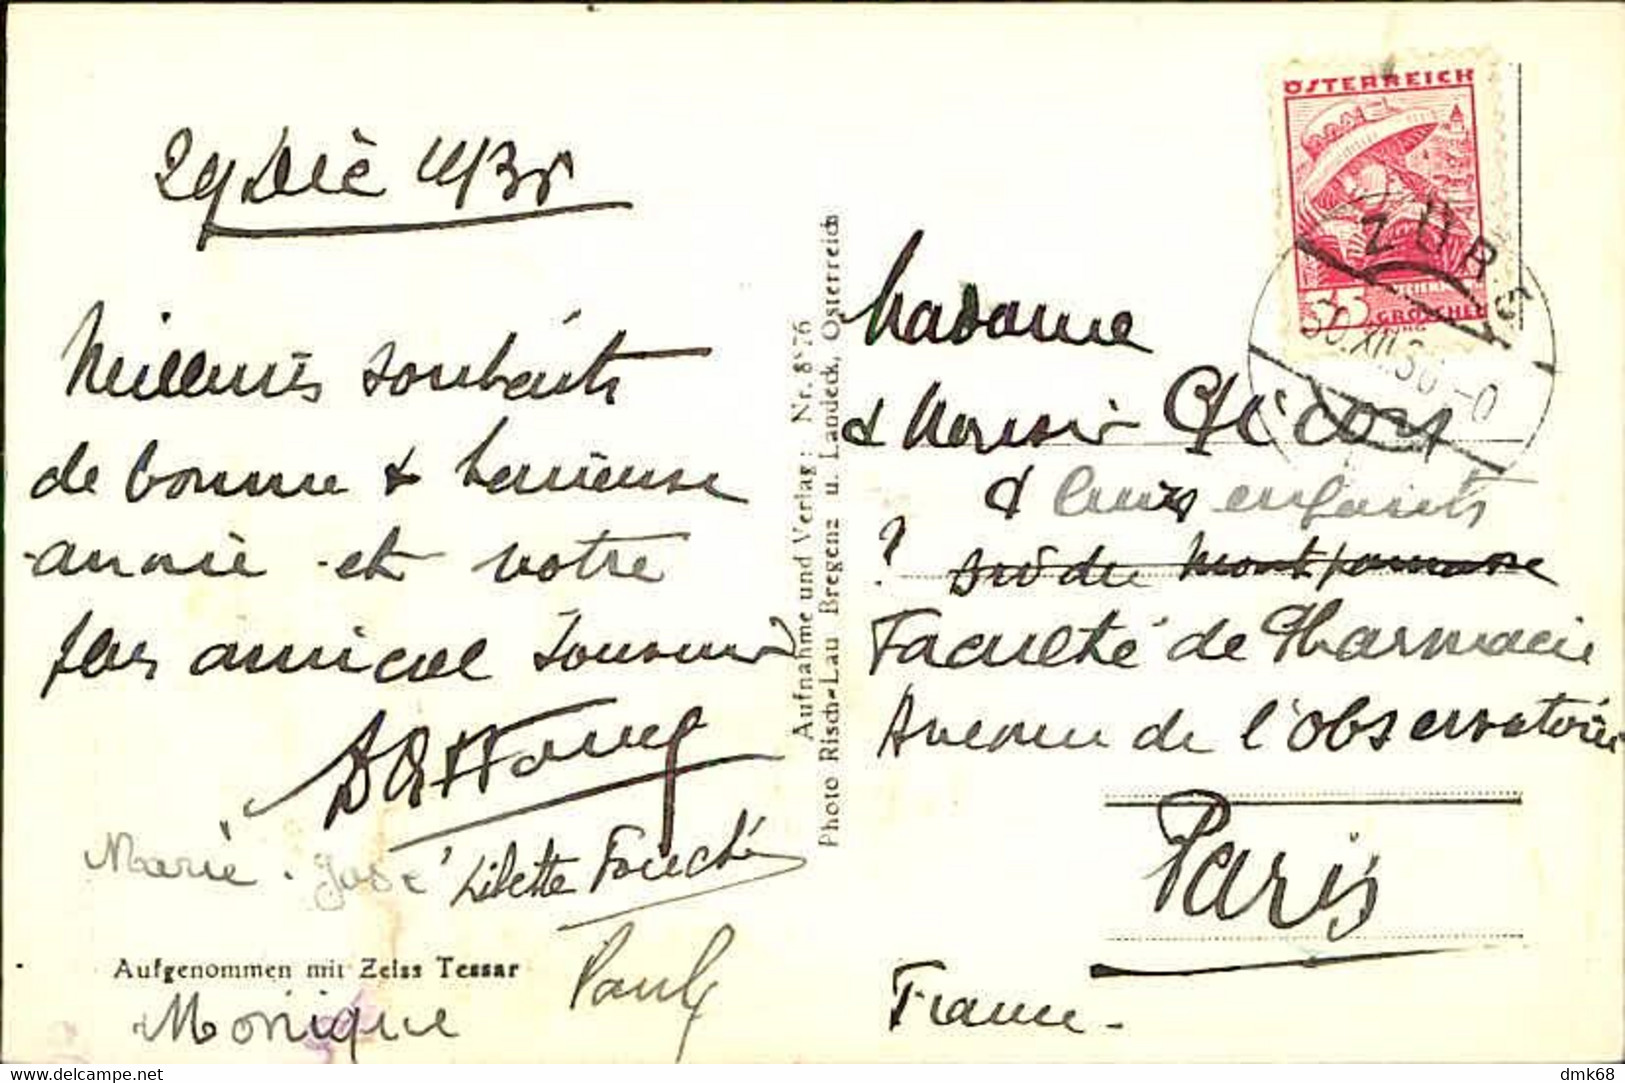 29 Déc 1935
Meilleurs souhaits
de bonne & heureuse
année et votre
plus amical souvenir
Marie-José Lilette Fouché
Aufgenommen mit Zeiss Tessar
Monique
Aufnahme und Verlag: Nr. 8876
Photo Risch-Lau Bregenz u. Landeck, Österreich
ÖSTERREICH
ZÜRS
GROSCHEN
Madame
& Monsieur
& leurs enfants
? Brd du Montparnasse
Faculté de Pharmacie
Avenue de l'Observatoire
Paris
France.
dmk68